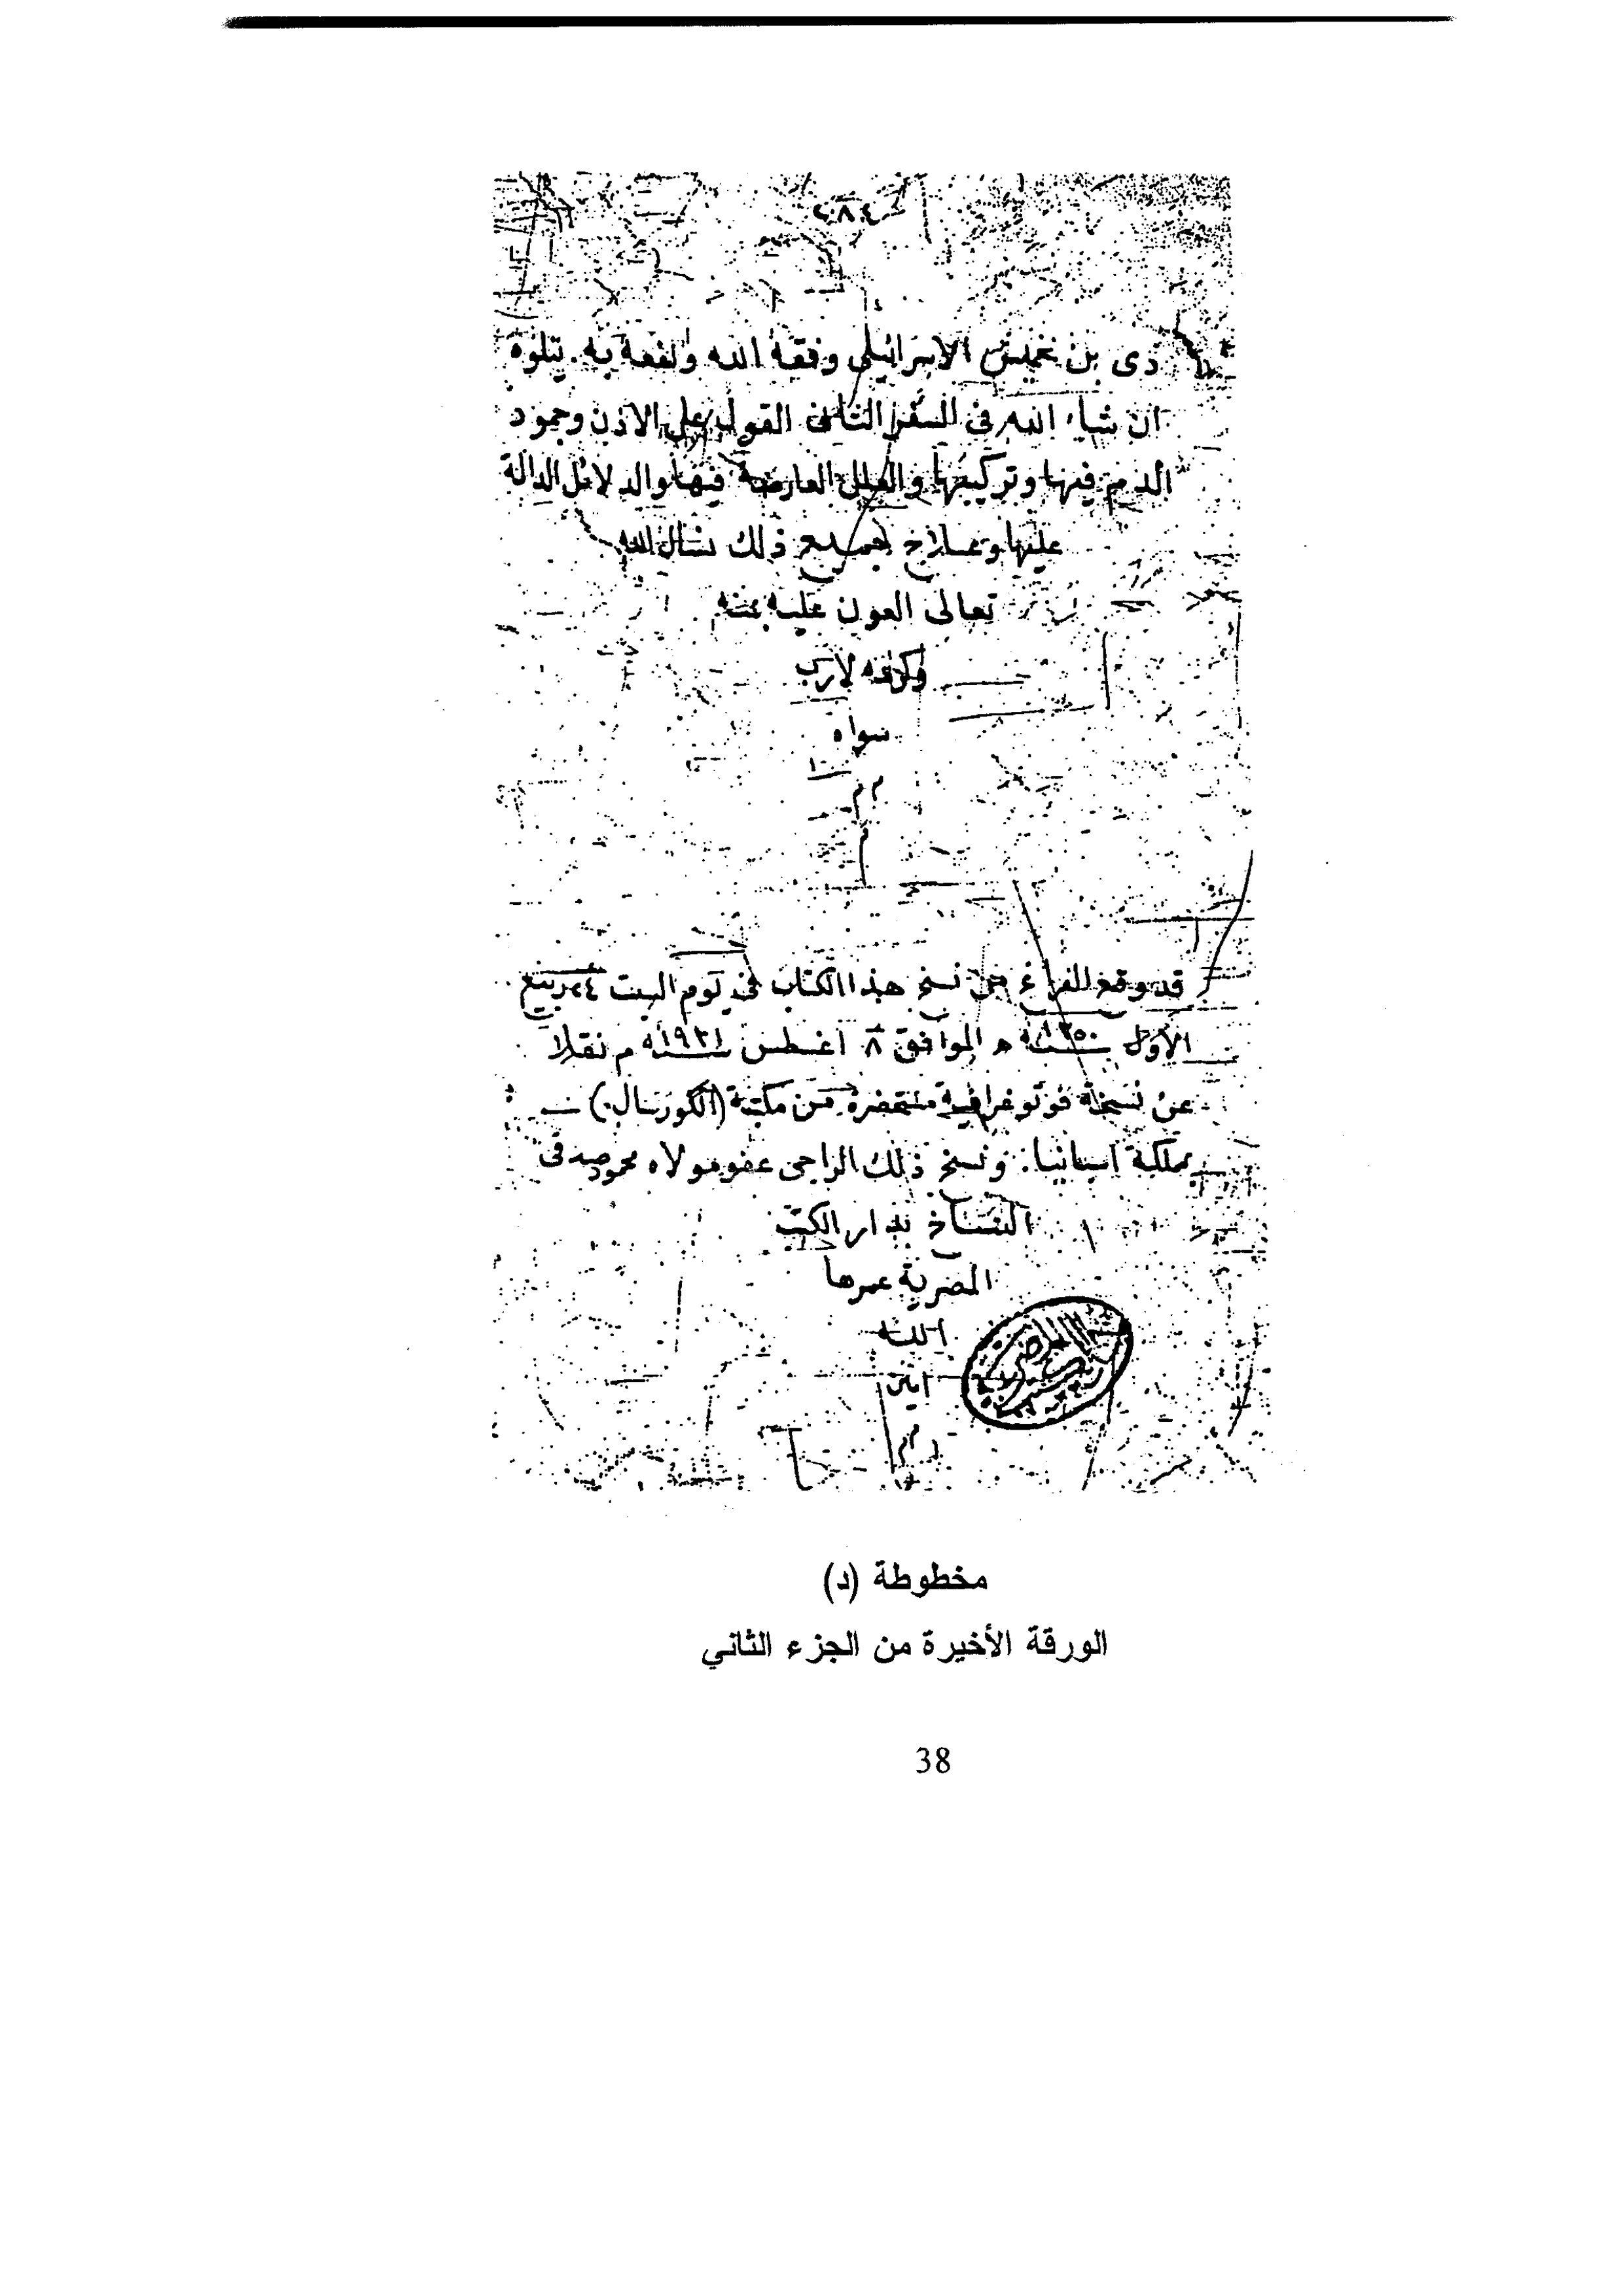 ٢٨٤
ذى بن خميس الاسرائيلى وفقه الله ونفعه به. يتلوه
ان شاء الله فى السفر الثانى القول على الاذن وجمود
الدم فيها وتركيبها والعلل العارضة فيها والدلائل الدالة
عليها وعلاج جميع ذلك نسال الله
تعالى العون عليه بمنه
وكرمه لا رب
سواه
م م
م
قد وقع الفراغ من نسخ هذا الكتاب فى يوم السبت ٢٤ ربيع
الاول سنة ١٣٥٠ ه الموافق ٨ اغسطس سنة ١٩٣١ م نقلا
عن نسخة فوتوغرافية مستحضرة من مكتبة (الكورسال)
بمملكة اسبانيا. ونسخ ذلك الراجى عفو مولاه محمود صدقى
النساخ بدار الكتب
المصرية عمرها
الله
امين
م م
مخطوطة (د)
الورقة الأخيرة من الجزء الثاني
38